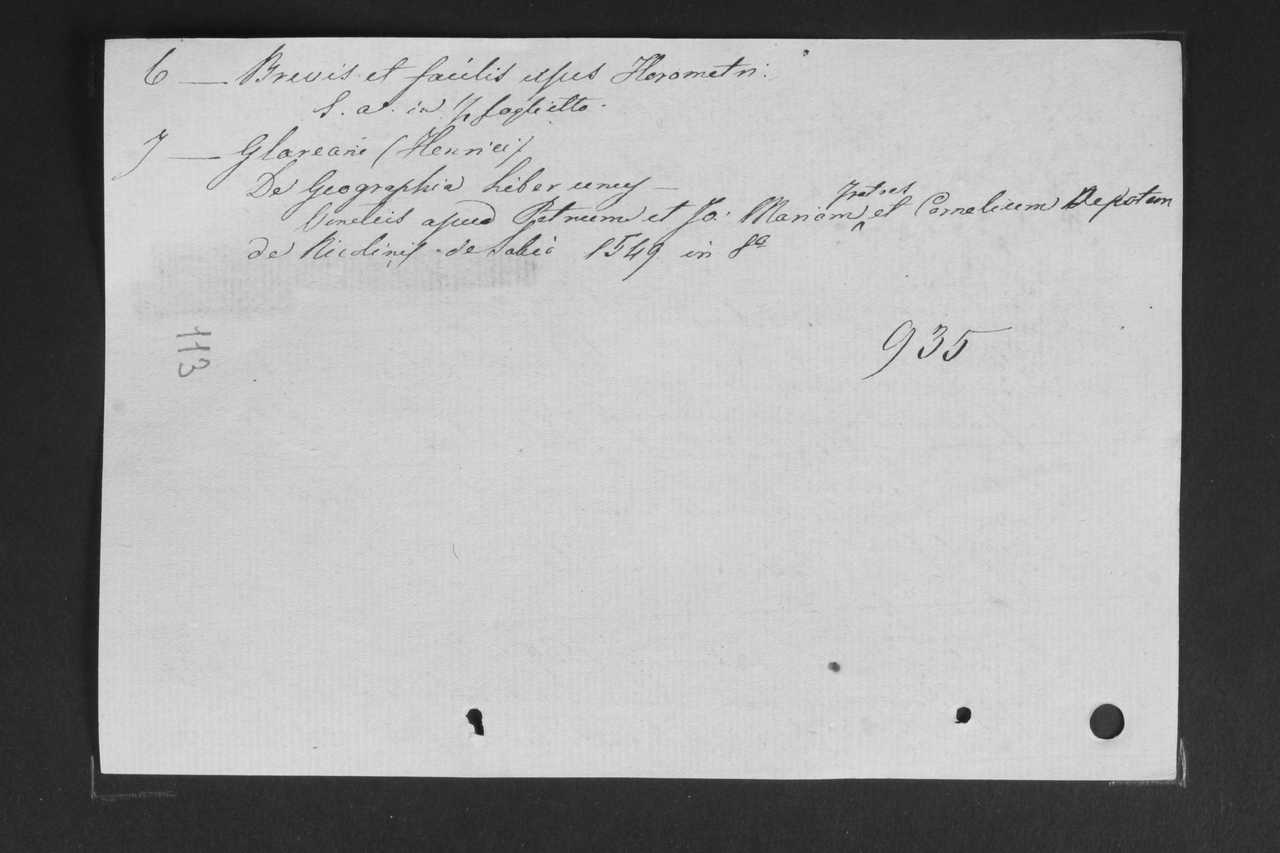 6 — Brevis et facilis usus Horometri:
S. a. in ½ foglietto.
7 — Glareani (Henrici)
De Geographia Liber unus —
Venetiis apud Petrum et Jo. Mariam fratres et Cornelium Nepotem
de Nicolinis de Sabio 1549 in 8º
935
113